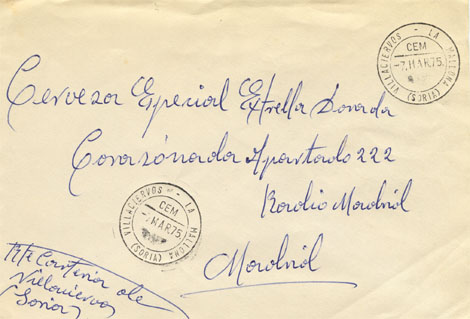 VILLACIERVOS - LA MALLONA
CEM
-7.MAR.75
(SORIA)
Cerveza Especial Estrella Dorada
Corazónada Apartado 222
Radio Madrid
Madrid
VILLACIERVOS - LA MALLONA
CEM
-7.MAR.75
(SORIA)
Rte Carteria de
Villaciervos
Soria